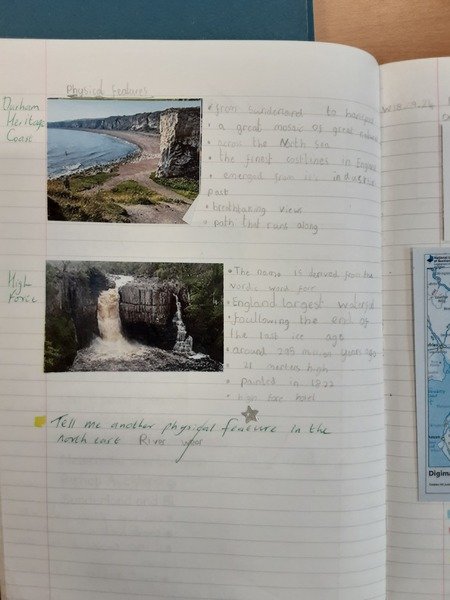 Physical features
Durham
Heritage
Coast
• from Sunderland to hartlepool
• a great mosaic of great
• across the North sea
• the finest costlines in England
• emerged from it's industrial
past
• breathtaking views
• path that runs along
High
Force
• The name is derived from the
word
• England largest waterfall
• foullowing the end of
the last ice age
• around 295 million years ago
• 21 meters high
• painted in 1822
• high force hotel
Tell me another physical feature in the
north east River wear
Digima